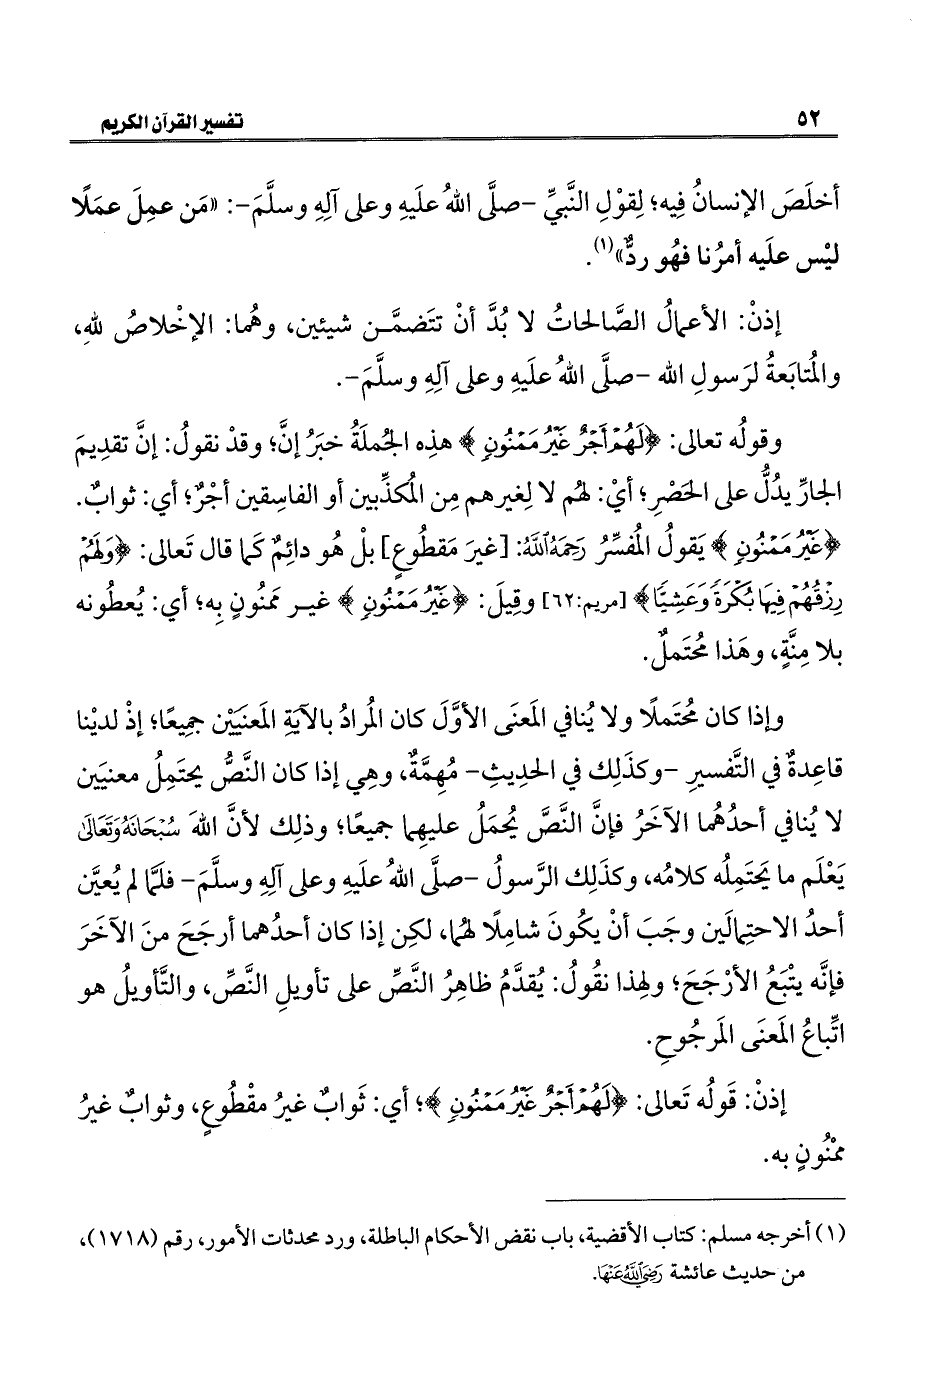 ٥٢
تفسير القرآن الكريم
أخلَصَ الإنسانُ فِيه؛ لِقوْلِ النَّبيِّ -صلَّى اللهُ علَيهِ وعلى آلِهِ وسلَّمَ-: «مَن عمِلَ عمَلًا
ليْس علَيه أمرُنا فهُو ردٌّ»(١).
إذنْ: الأعمالُ الصَّالحاتُ لا بُدَّ أنْ تتَضمَّـن شيئين، وهُما: الإخْلاصُ للهِ،
والمُتابَعةُ لرَسولِ الله -صلَّى اللهُ علَيهِ وعلى آلِهِ وسلَّمَ-.
وقولُه تعالى: ﴿لَهُمْ أَجْرٌ غَيْرُ مَمْنُونٍ﴾ هذِه الجُملَةُ خبَرُ إنَّ؛ وقدْ نقولُ: إنَّ تقدِيمَ
الجارِّ يدُلُّ على الحَصْرِ؛ أيْ: لهُم لا لِغيرهم مِن المُكذِّبين أو الفاسِقين أجْرٌ؛ أي: ثوابٌ.
﴿غَيْرُ مَمْنُونٍ﴾ يَقولُ المُفسِّرُ رَحِمَهُ ٱللَّهُ: [غيرَ مَقطُوعٍ] بلْ هُو دائِمٌ كَما قال تَعالى: ﴿وَلَهُمْ
رِزْقُهُمْ فِيهَا بُكْرَةً وَعَشِيًّا﴾ [مريم:٦٢] وقِيلَ: ﴿غَيْرُ مَمْنُونٍ﴾ غيـر ممَنُونٍ بِه؛ أي: يُعطُونه
بلا مِنَّةٍ، وهَذا مُحْتَملٌ.
وإذا كان مُحْتَملًا ولا يُنافي المَعنَى الأوَّلَ كان المُرادُ بالآيَةِ المَعنَيَيْن جمِيعًا؛ إذْ لديْنا
قاعِدةٌ في التَّفسيرِ -وكذَلِك في الحَديثِ- مُهِمَّةٌ، وهِي إذا كان النَّصُّ يحتَمِلُ معنيَين
لا يُنافي أحدُهُما الآخَرُ فإنَّ النَّصَّ يُحمَلُ عليهِما جميعًا؛ وذلِك لأنَّ اللهَ سُبْحَانَهُ وَتَعَالَىٰ
يَعْلَم ما يَحْتَمِلُه كلامُه، وكذَلِك الرَّسولُ -صلَّى اللهُ علَيهِ وعلى آلِهِ وسلَّمَ- فلَمَّا لم يُعيَّن
أحدُ الاحتِمالَين وجَبَ أنْ يكُونَ شامِلًا لهُما، لكِن إذا كان أحدُهما أرجَحَ منَ الآخَرَ
فإنَّه يتْبَعُ الأرْجَحَ؛ ولهِذا نقُولُ: يُقدَّمُ ظاهِرُ النَّصِّ على تأويلِ النَّصِّ، والتَّأويلُ هو
اتِّباعُ المَعنَى المَرجُوحِ.
إذنْ: قَولُه تَعالى: ﴿لَهُمْ أَجْرٌ غَيْرُ مَمْنُونٍ﴾؛ أي: ثَوابٌ غيرُ مقْطُوعٍ، وثوابٌ غيرُ
ممْنُونٍ به.
(١) أخرجه مسلم: كتاب الأقضية، باب نقض الأحكام الباطلة، ورد محدثات الأمور، رقم (١٧١٨)،
من حديث عائشة رَضِيَ ٱللَّهُ عَنْهَا.